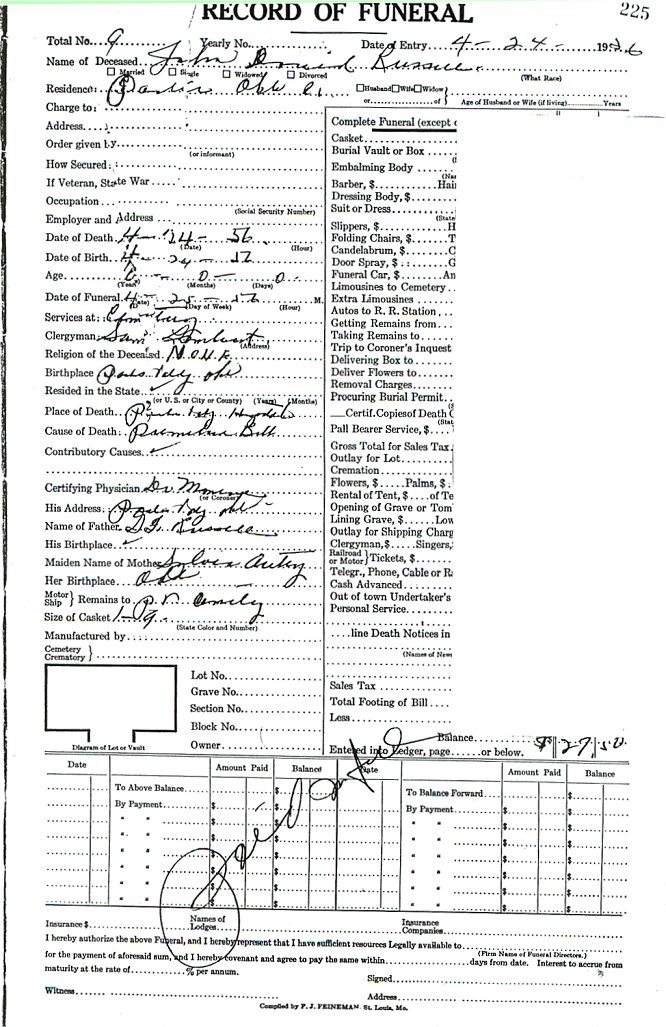 RECORD OF FUNERAL
225
Total No. 9 Yearly No. Date of Entry 4-24-1956
Name of Deceased John David Russell
☐ Married ☐ Single ☐ Widowed ☐ Divorced (What Race)
Residence: Okla ☐Husband☐Wife☐Widow
or of Age of Husband or Wife (if living) Years
Charge to:
Address
Order given by
(or informant)
How Secured:
If Veteran, State War
Occupation
(Social Security Number)
Employer and Address
Date of Death 4-24-56
(Date) (Hour)
Date of Birth 4-24-
Age 0-0-0
(Years) (Months) (Days)
Date of Funeral 4-25- M.
(Date) (Day of Week) (Hour)
Services at:
Clergyman Sam
(Address)
Religion of the Deceased None
Birthplace Okl
Resided in the State ✓
(or U.S. or City or County) (Years) (Months)
Place of Death
Cause of Death: Premature Birth
Contributory Causes ✓
Certifying Physician Dr.
(or Coroner)
His Address: Okl
Name of Father Russell
His Birthplace ✓
Maiden Name of Mother Sylvia Autry
Her Birthplace Okl
Motor Ship } Remains to
Size of Casket 1-9
(State Color and Number)
Manufactured by
Cemetery Crematory }
Lot No.
Grave No.
Section No.
Block No.
Owner
Diagram of Lot or Vault
Complete Funeral (except
Casket
Burial Vault or Box
Embalming Body
Barber, $ Hai
Dressing Body, $
Suit or Dress
(State
Slippers, $ H
Folding Chairs, $ T
Candelabrum, $ C
Door Spray, $ G
Funeral Car, $ An
Limousines to Cemetery
Extra Limousines
Autos to R. R. Station,
Getting Remains from
Taking Remains to
Trip to Coroner's Inquest
Delivering Box to
Deliver Flowers to
Removal Charges
Procuring Burial Permit
Certif. Copies of Death C
(Stat
Pall Bearer Service, $
Gross Total for Sales Tax
Outlay for Lot
Cremation
Flowers, $ Palms, $
Rental of Tent, $ of Te
Opening of Grave or Tom
Lining Grave, $ Low
Outlay for Shipping Charg
Clergyman, $ Singers,
Railroad or Motor } Tickets, $
Telegr., Phone, Cable or Ra
Cash Advanced
Out of town Undertaker's
Personal Service
line Death Notices in
(Names of New
Sales Tax
Total Footing of Bill
Less
Balance
Entered into Ledger, page or below. $ 27.50
Date Amount Paid Balance Date Amount Paid Balance
To Above Balance $ To Balance Forward $
By Payment $ By Payment $
Paid in full
Insurance $ Names of Lodges Insurance Companies
I hereby authorize the above Funeral, and I hereby represent that I have sufficient resources Legally available to
(Firm Name of Funeral Directors.)
for the payment of aforesaid sum, and I hereby covenant and agree to pay the same within days from date. Interest to accrue from
maturity at the rate of % per annum.
Signed
Witness Address
Compiled by F. J. FEINEMAN. St. Louis, Mo.